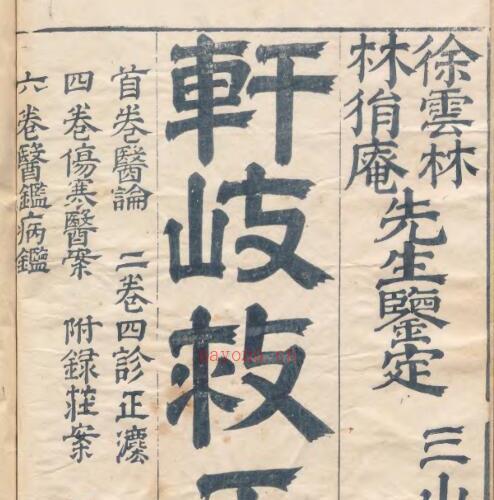 徐雲林
林脩庵
先生鑒定
三山
軒岐救正
首卷醫論 二卷四診正灋
四卷傷寒醫案 附録茌案
六卷醫鑑病鑑